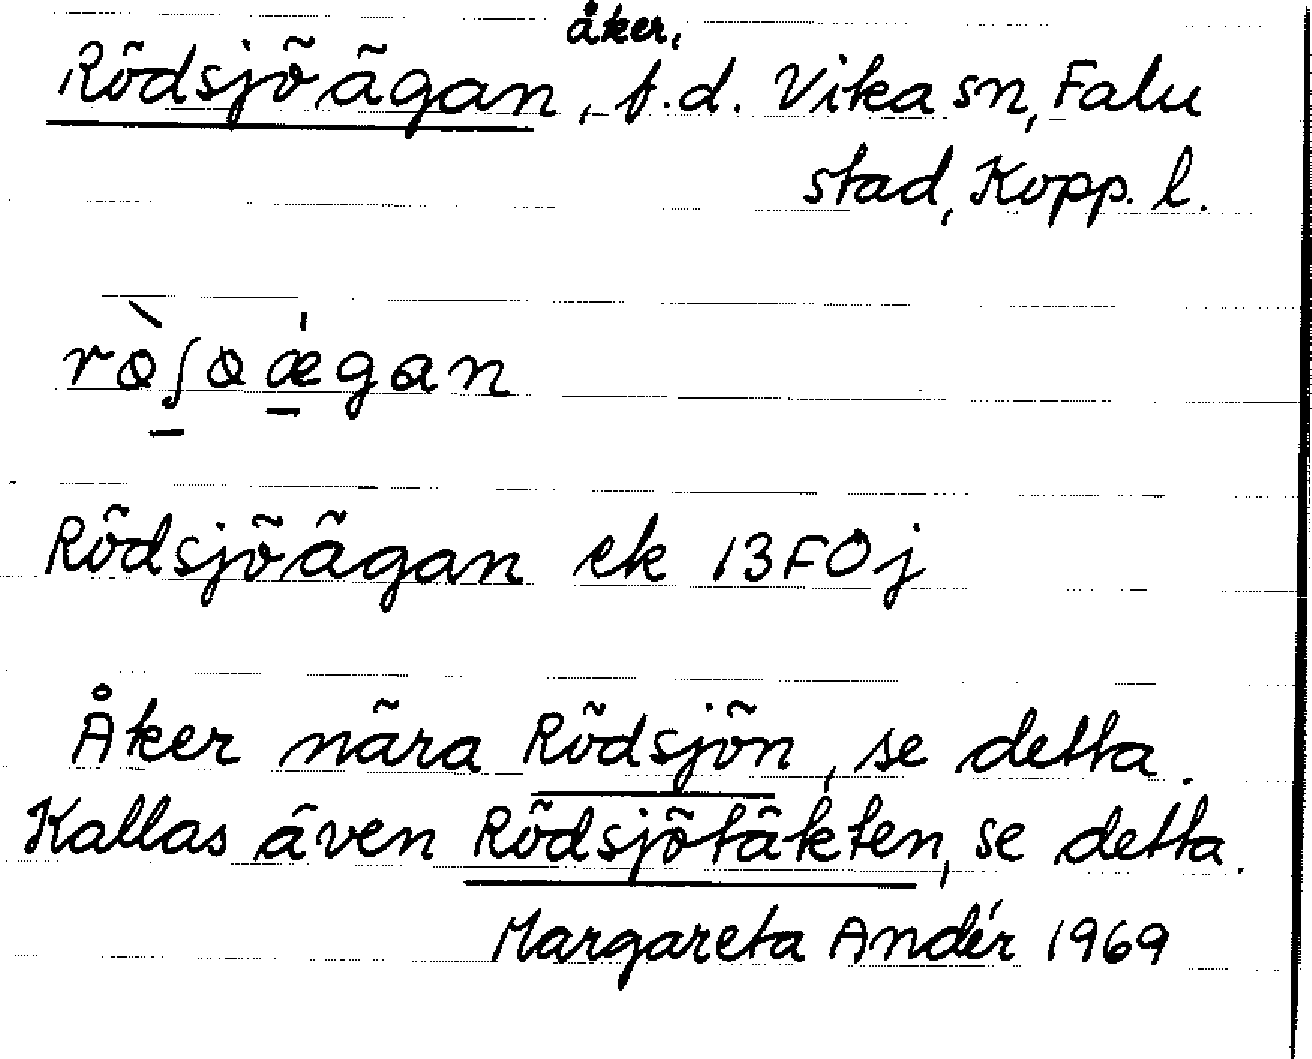 Rödsjöägan, åker, f.d. Vika sn, Falu
stad, Kopp. l.
rò̱ʃɵ ǽ̱gan
Rödsjöägan ek 13F0j
Åker nära Rödsjön, se detta.
Kallas även Rödsjötäkten, se detta.
Margareta Andér 1969